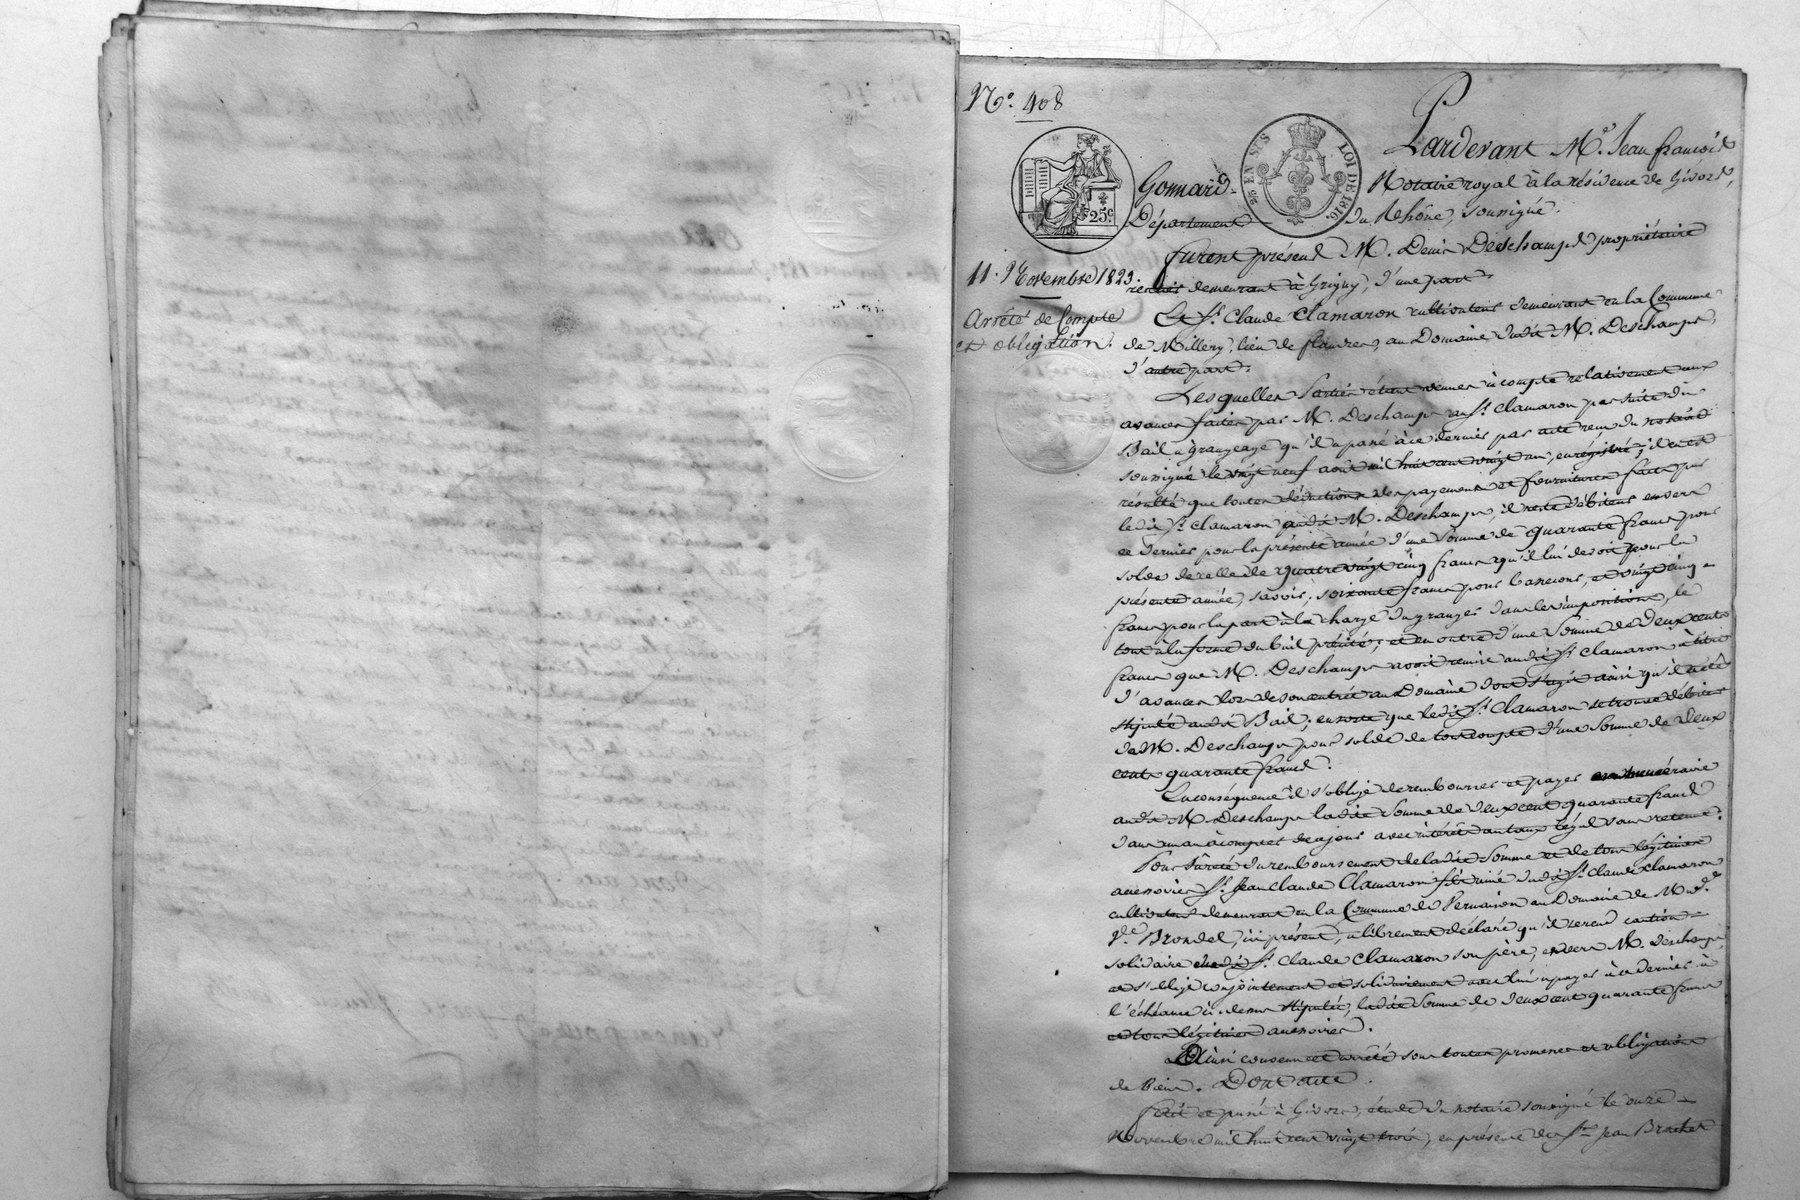 N.º 408
Pardevant M.e Jean françois
Gonnard, Notaire royal à la résidence de Givors,
Département du Rhône, soussigné.
25c.
25 EN SUS
LOI DE 1816.
11. Novembre 1823.
Arrêté de Compte
et obligation.
furent présens M. Denis Deschamps propriétaire
rentier demeurant à Grigny, d'une part.
Le Sr. Claude Clamaron cultivateur demeurant en la Commune
de Millery, lieu de flandres, au Domaine dudit M. Deschamps,
d'autre part.
Lesquelles Parties étant venues à compte relativement aux
avances faites par M. Deschamps au Sr. Clamaron par suite du
Bail à grangeage qu'il a passé à ce dernier par acte reçu du notaire
soussigné le vingt neuf août mil huit cent vingt un, enregistré; il en est
résulté que toutes déductions des payemens et fournitures faits par
ledit Sr. Clamaron audit M. Deschamps, il reste débiteur envers
ce dernier pour la présente année d'une Somme de quarante francs pour
solde de celle de quatre vingt cinq francs qu'il lui devoit pour la
présente année, savoir; soixante francs pour basse cour, et vingt cinq
francs pour la part à la charge du granger dans les impositions, le
tout à la forme du bail précité; et en outre d'une Somme de deux cents
francs que M. Deschamps avoit remis audit Sr. Clamaron à titre
d'avances lors de son entrée au Domaine dont s'agit ainsi qu'il a été
stipulé audit Bail; ensorte que ledit Sr. Clamaron se trouve débiteur
de M. Deschamps pour solde de tout compte d'une Somme de deux
cent quarante francs.
En conséquence il s'oblige de rembourser et payer en numéraire
audit M. Deschamps ladite Somme de deux cent quarante francs
dans un an à compter de ce jour avec intérêt au taux légal sans retenue.
Pour sûreté du remboursement de ladite Somme et de tous légitimes
accessoires Sr. Jean Claude Clamaron fils ainé dudit Sr. Claude Clamaron
cultivateur demeurant en la Commune de Vernaison au Domaine de Mad.e
V.e Brondel, ici présent, a librement déclaré qu'il se rend caution
solidaire dudit Sr. Claude Clamaron son père, envers M. Deschamps,
et s'oblige conjointement et solidairement avec lui à payer à ce dernier à
l'échéance ci-dessus stipulée, ladite Somme de deux cent quarante francs
et tous légitimes accessoires.
Ainsi convenu et arrêté sous toutes promesses et obligations
de Biens. Dont acte.
fait et passé à Givors, étude du notaire soussigné le onze
Novembre mil huit cent vingt trois, en présence de Srs Jean Brachet